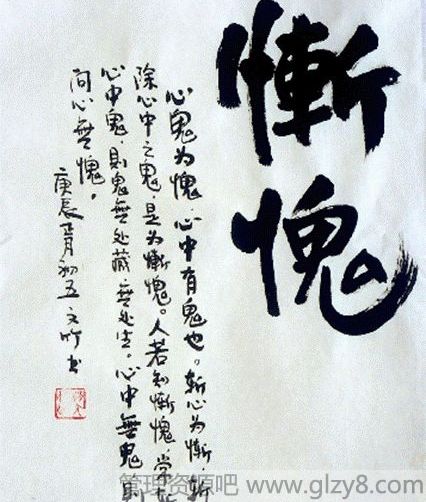 慚愧
心鬼为愧，心中有鬼也。斬心为慚，斬
除心中之鬼，是为慚愧。人若知慚愧，常斬
心中鬼，則鬼無处藏，無处生。心中無鬼，則
问心無愧。
庚辰正月初五文竹书
管理资源吧 www.glzy8.com